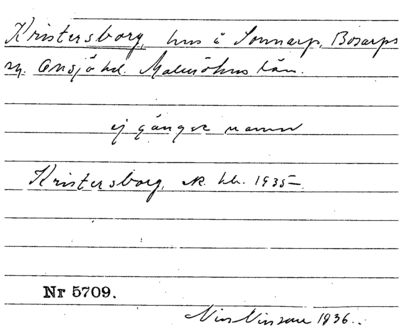 Kristersborg, hus å Sonnarp, Bosarps
sn. Onsjö hd. Malmöhus län.
ej gängse namn
Kristersborg, hb. 1935–
Nr 5709.
Nils Nilsson 1936.